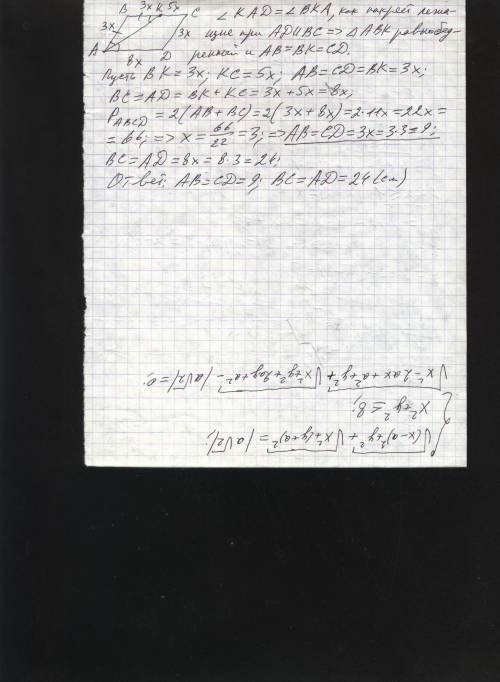 B 3x K 5x C
3x
3x
A 8x D
∠KAD = ∠BKA, как накрест лежа-
щие при AD∥BC => △ABK равнобед-
ренный и AB=BK=CD.
Пусть BK=3x; KC=5x; AB=CD=BK=3x;
BC=AD=BK+KC=3x+5x=8x;
P_ABCD=2(AB+BC)=2(3x+8x)=2·11x=22x=
=66; => x=66/22=3; => AB=CD=3x=3·3=9;
BC=AD=8x=8·3=24;
Ответ: AB=CD=9; BC=AD=24(см)
√(x-a)²+y² + √x²+(y+a)² = |a√2|;
x²+y² ≤ 8;
√x²-2ax+a²+y² + √x²+y²+2ay+a² - |a√2| = 0;